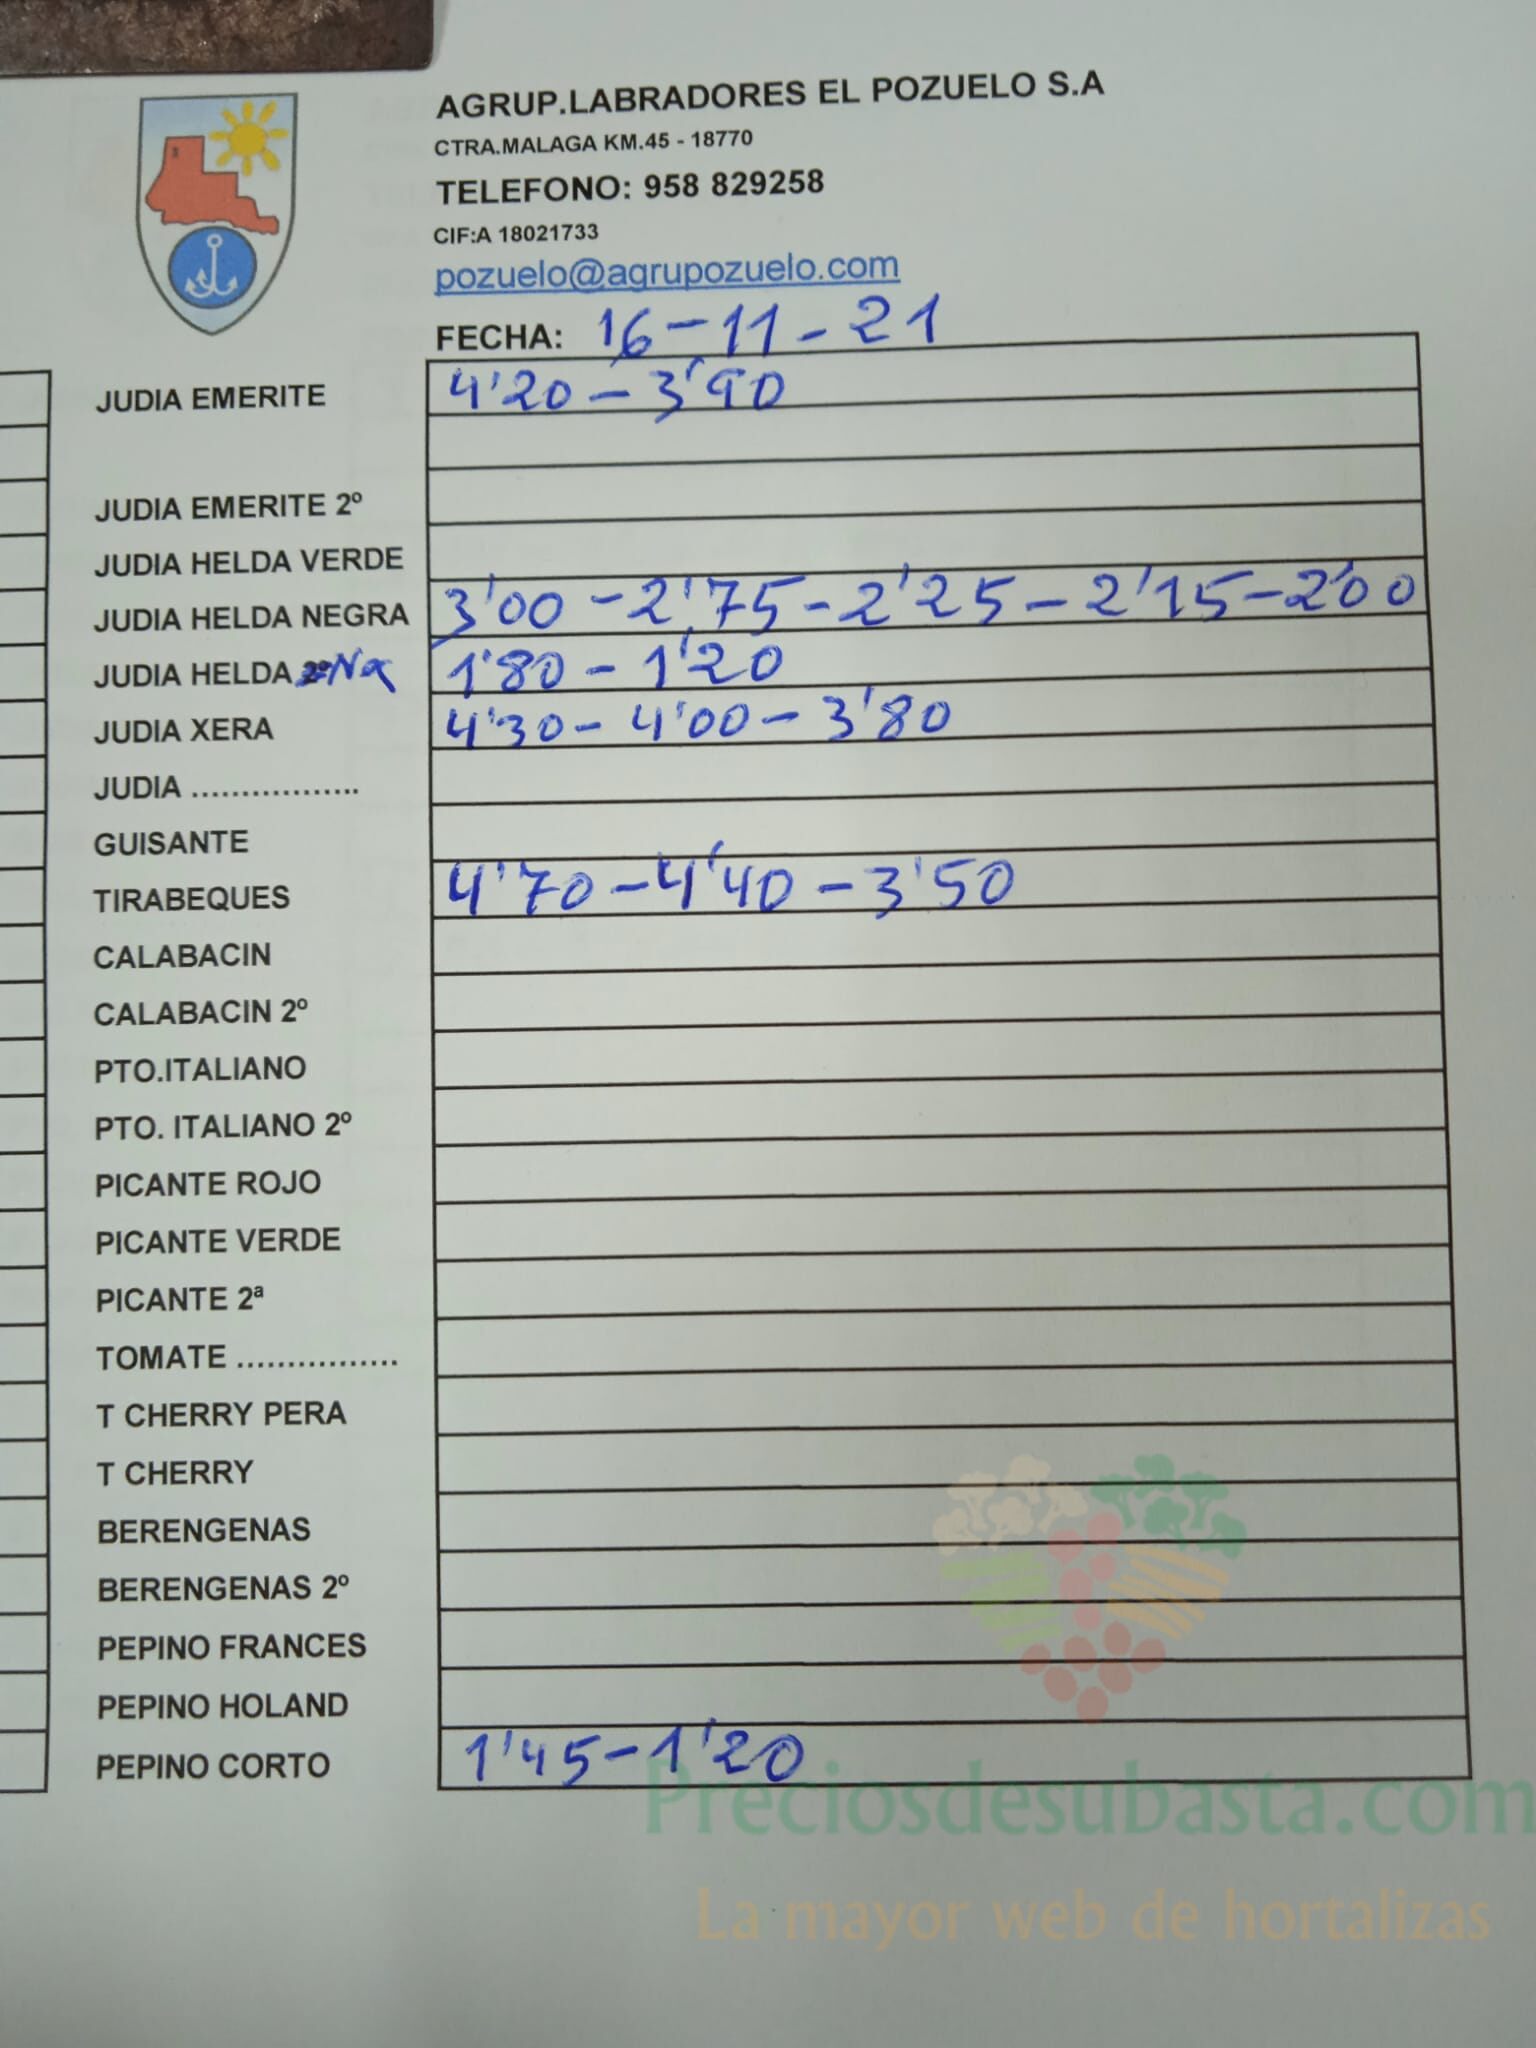 AGRUP.LABRADORES EL POZUELO S.A
CTRA.MALAGA KM.45 - 18770
TELEFONO: 958 829258
CIF:A 18021733
pozuelo@agrupozuelo.com
FECHA: 16-11-21
JUDIA EMERITE 4'20 - 3'90
JUDIA EMERITE 2º
JUDIA HELDA VERDE
JUDIA HELDA NEGRA 3'00 - 2'75 - 2'25 - 2'15 - 2'00
JUDIA HELDA 2º Na 1'80 - 1'20
JUDIA XERA 4'30 - 4'00 - 3'80
JUDIA .................
GUISANTE
TIRABEQUES 4'70 - 4'40 - 3'50
CALABACIN
CALABACIN 2º
PTO.ITALIANO
PTO. ITALIANO 2º
PICANTE ROJO
PICANTE VERDE
PICANTE 2ª
TOMATE ................
T CHERRY PERA
T CHERRY
BERENGENAS
BERENGENAS 2º
PEPINO FRANCES
PEPINO HOLAND
PEPINO CORTO 1'45 - 1'20
Preciosdesubasta.com
La mayor web de hortalizas